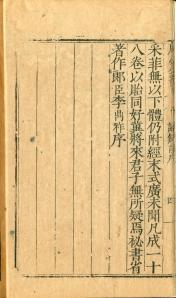 采菲無以下體仍附經末式廣未聞凡成一十
八卷以貽同好冀將來君子無所疑焉秘書省
著作郎臣李鼎祚序